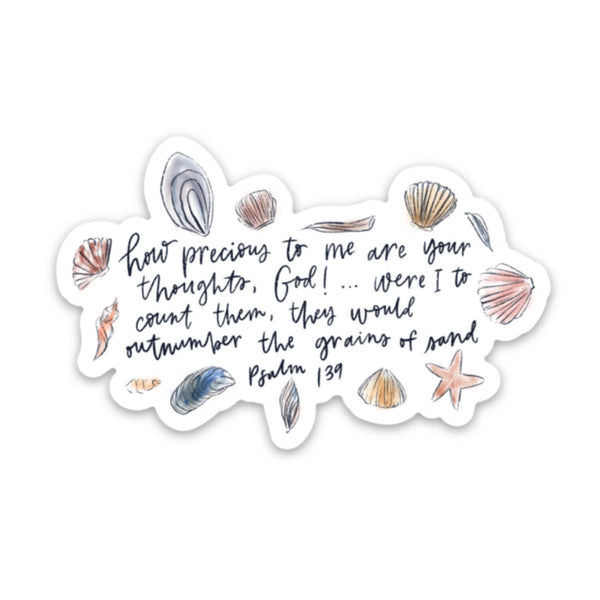 how precious to me are your
thoughts, God! ... were I to
count them, they would
outnumber the grains of sand
Psalm 139